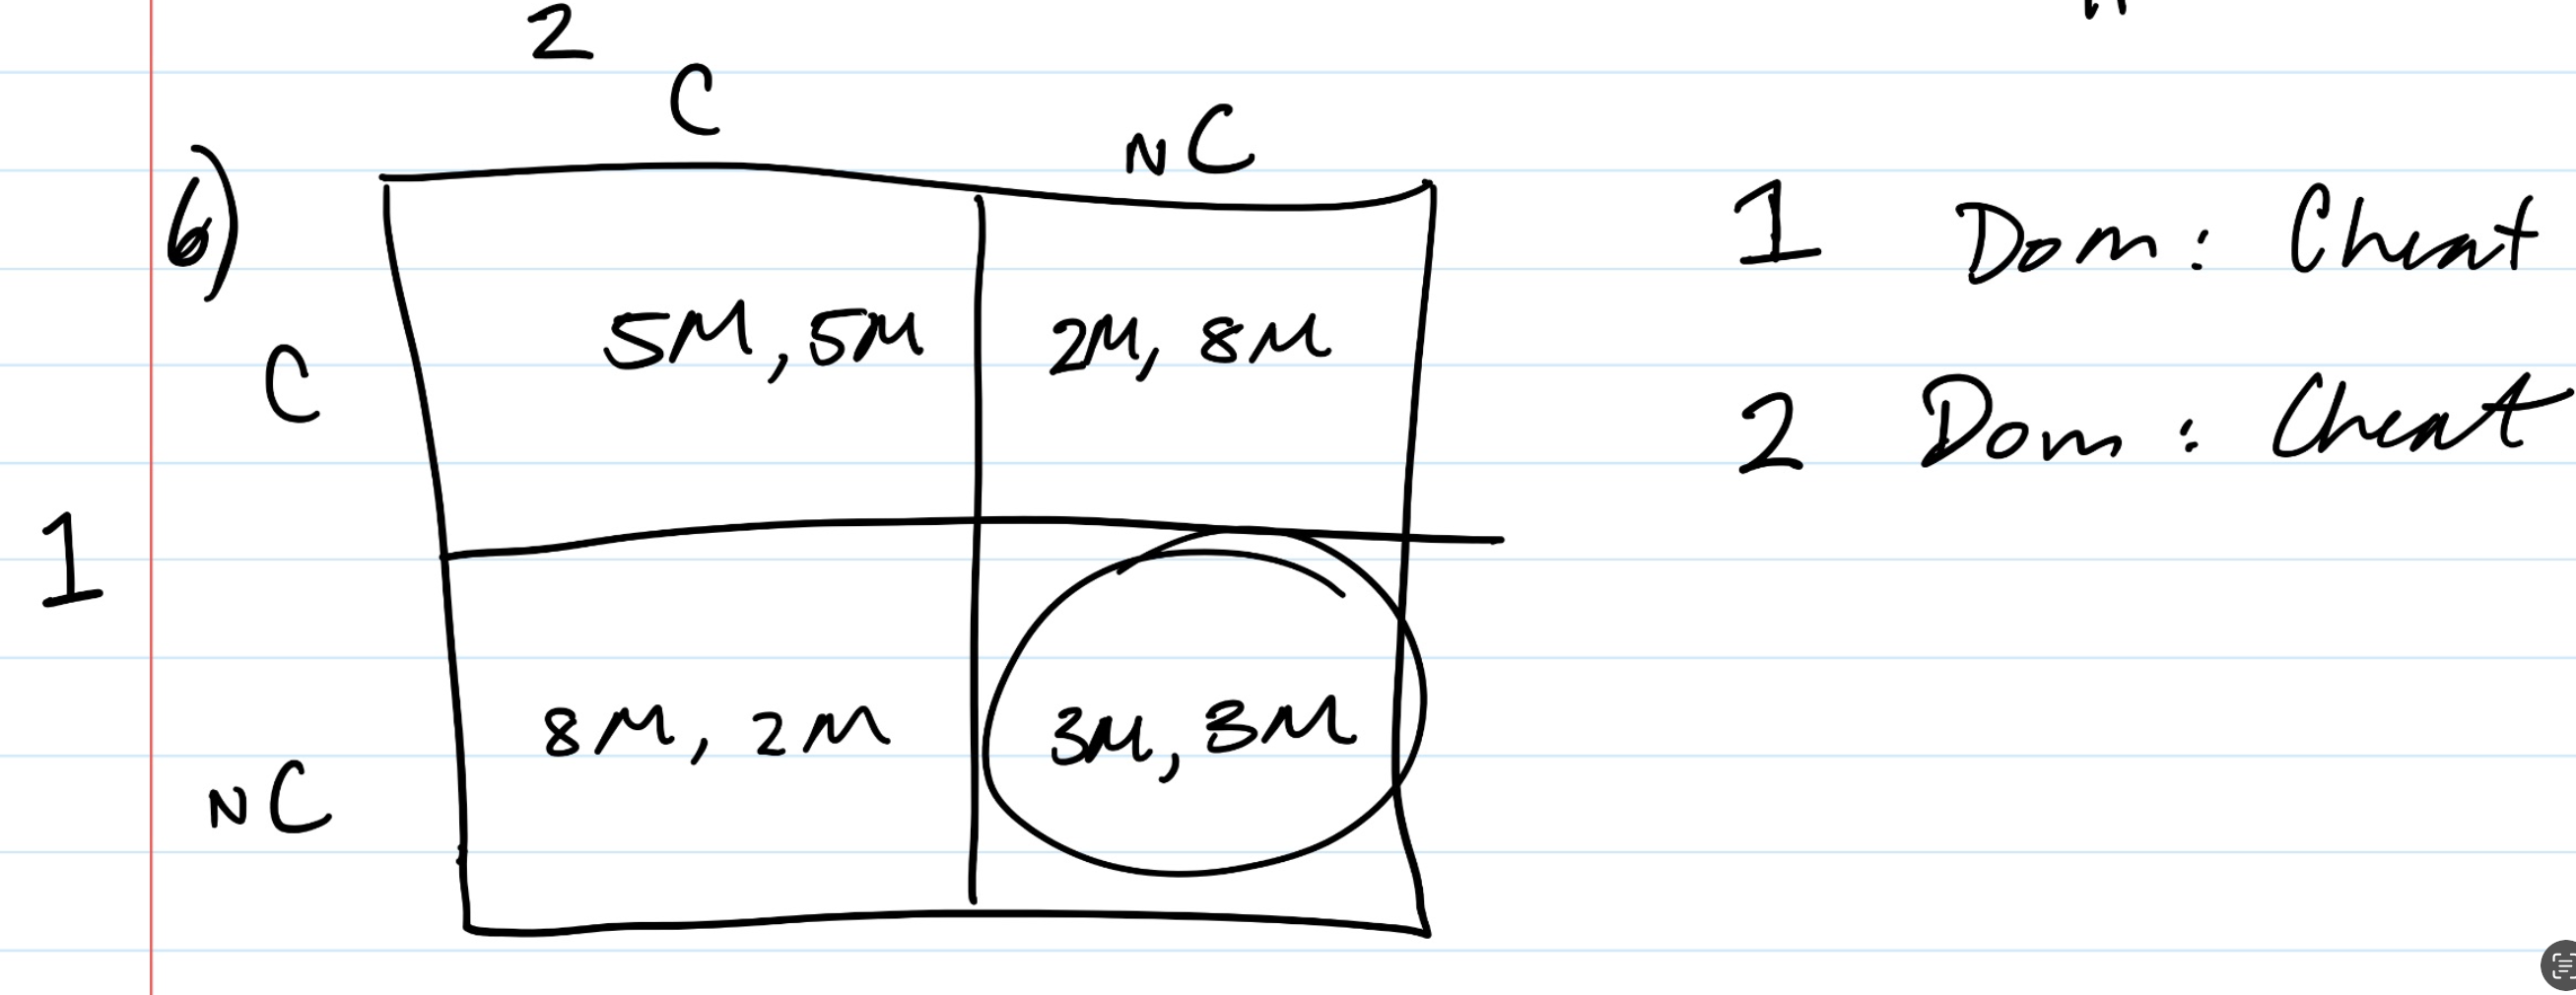 2
C NC
6)
C 5M, 5M 2M, 8M
1
NC 8M, 2M 3M, 3M
1 Dom: Cheat
2 Dom: Cheat